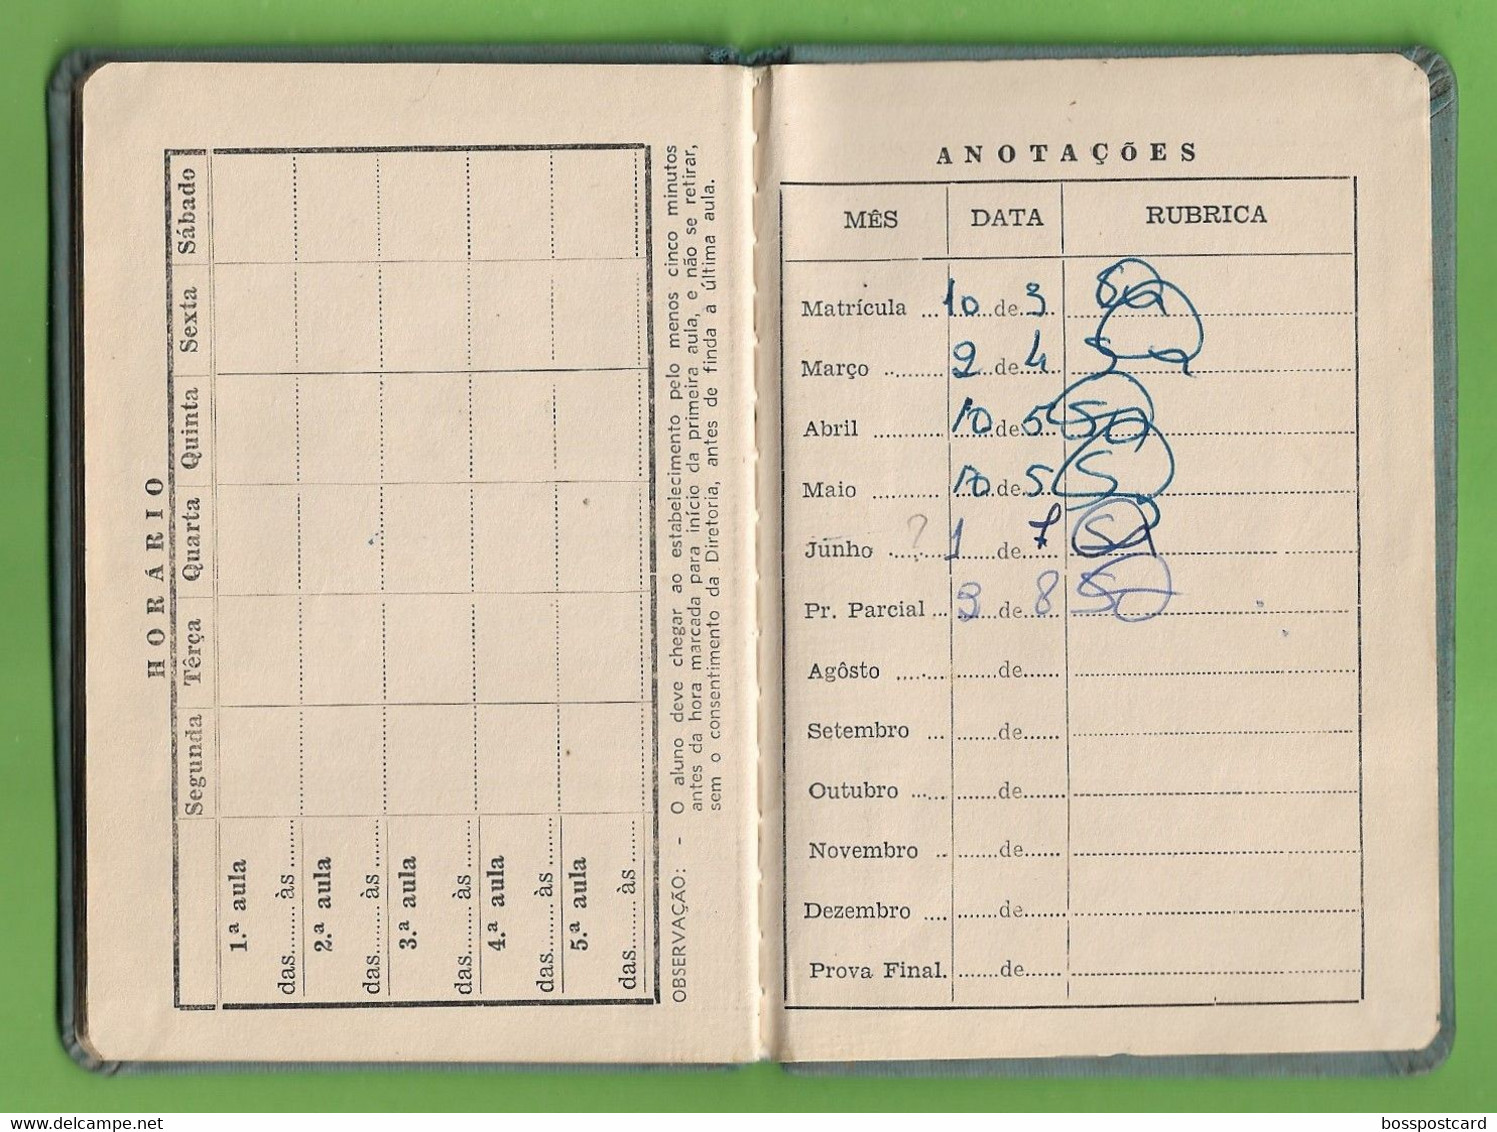 HORÁRIO
Segunda Têrça Quarta Quinta Sexta Sábado
1.ª aula
das........às........
2.ª aula
das........às........
3.ª aula
das........às........
4.ª aula
das........às........
5.ª aula
das........às........
OBSERVAÇÃO: - O aluno deve chegar ao estabelecimento pelo menos cinco minutos
antes da hora marcada para início da primeira aula, e não se retirar,
sem o consentimento da Diretoria, antes de finda a última aula.
ANOTAÇÕES
MÊS DATA RUBRICA
Matrícula ... 10 de 3
Março .......... 2 de 4
Abril ........... 10 de 5
Maio ........... 10 de 5
Junho ? 1 de 7
Pr. Parcial ... 3 de 8
Agôsto ........ .......de......
Setembro ... .......de......
Outubro ...... .......de.......
Novembro .. .......de......
Dezembro .... .......de.......
Prova Final. .......de......
bosspostcard